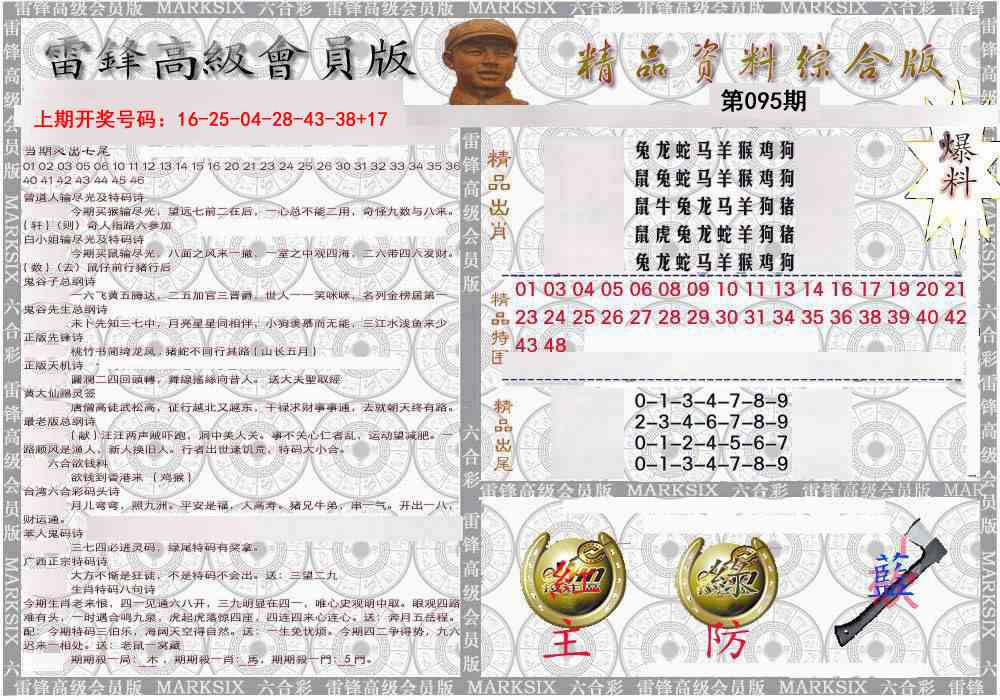 雷锋高级会员版 MARKSIX 六合彩 雷锋高级会员版 MARKSIX 六合彩 雷锋高级会员版 MARKSIX 六合彩 雷锋
雷鋒高級會員版
精品资料综合版
第095期
上期开奖号码：16-25-04-28-43-38+17
当期灵出七尾
01 02 03 05 06 10 11 12 13 14 15 16 20 21 23 24 25 26 30 31 32 33 34 35 36
40 41 42 43 44 45 46
曾道人输尽光及特码诗
今期买猴输尽光，望远七前二在后，一心总不能二用，奇怪九数与八来。
{轩}（则）奇人指路六参加
白小姐输尽光及特码诗
今期买鼠输尽光，八面之风来一撤，一室之中观四海，二六带四六发财。
{数}（去）鼠仔前行猪行后
鬼谷子总纲诗
一六飞黄五腾达，二五加官三晋爵，世人一一笑咪咪，名列金榜居第一
鬼谷先生总纲诗
未卜先知三七中，月亮星星同相伴，小狗羡慕而无能，三江水浅鱼来少
正版先锋诗
桃竹书简绮龙凤，猪蛇不同行其路{山长五月}
正版天机诗
圖瀾二四回頭轉，舞線搖緣向昔人。 送大夫聖取經
黄大仙賜灵签
唐僧高徒武松高，征行越北又越东，千禄求财事事通，去就朝天终有路。
最老版总纲诗
{献}汪汪两声贼吓跑，洞中美人关。事不关心仁者乱，运动望减肥。一
路顺风是通人，新人换旧人。行者出世逢饥荒，特码大小合。
六合欲钱料
欲钱到香港来 {鸡猴}
台湾六合彩码头诗
月儿弯弯，照九洲。平安是福，人高寿。猪兄牛弟，串一气。开出一八，
财运通。
苯人鬼码诗
三七四必进灵码，绿尾特码有奖拿。
广西正宗特码诗
大方不惭是狂徒，不是特码不会出。送：三望二九
生肖特码八句诗
今期生肖老来恨，四一见通六八开，三九明显在四一，唯心史观胡中取。眼观四路
难有头，一时遇合鸣九泉，虎起虎落惊四座，四连四来心连心。送：奔月五岳程。
配：今期特码三伯乐，海阔天空得自然。送：一生见忧烦。今期四二争得势，九六
迟来一相处。送：老鼠一窝藏
期期殺一局：木，期期殺一肖：馬，期期殺一門：5門。
精品出肖
兔龙蛇马羊猴鸡狗
鼠兔蛇马羊猴鸡狗
鼠牛兔龙马羊狗猪
鼠虎兔龙蛇羊狗猪
兔龙蛇马羊猴鸡狗
爆料
精品特围
01 03 04 05 06 08 09 10 11 13 14 16 17 19 20 21
23 24 25 26 27 28 29 30 31 34 35 36 38 39 40 42
43 48
精品出尾
0-1-3-4-7-8-9
2-3-4-6-7-8-9
0-1-2-4-5-6-7
0-1-3-4-7-8-9
雷锋高级会员版 MARKSIX 六合彩 雷锋高级会员版 MAR
紅
主
綠
防
藍
雷锋高级会员版 MARKSIX 六合彩 雷锋高级会员版 MARKSIX 六合彩 雷锋高级会员版 MARKSIX 六合彩 雷锋